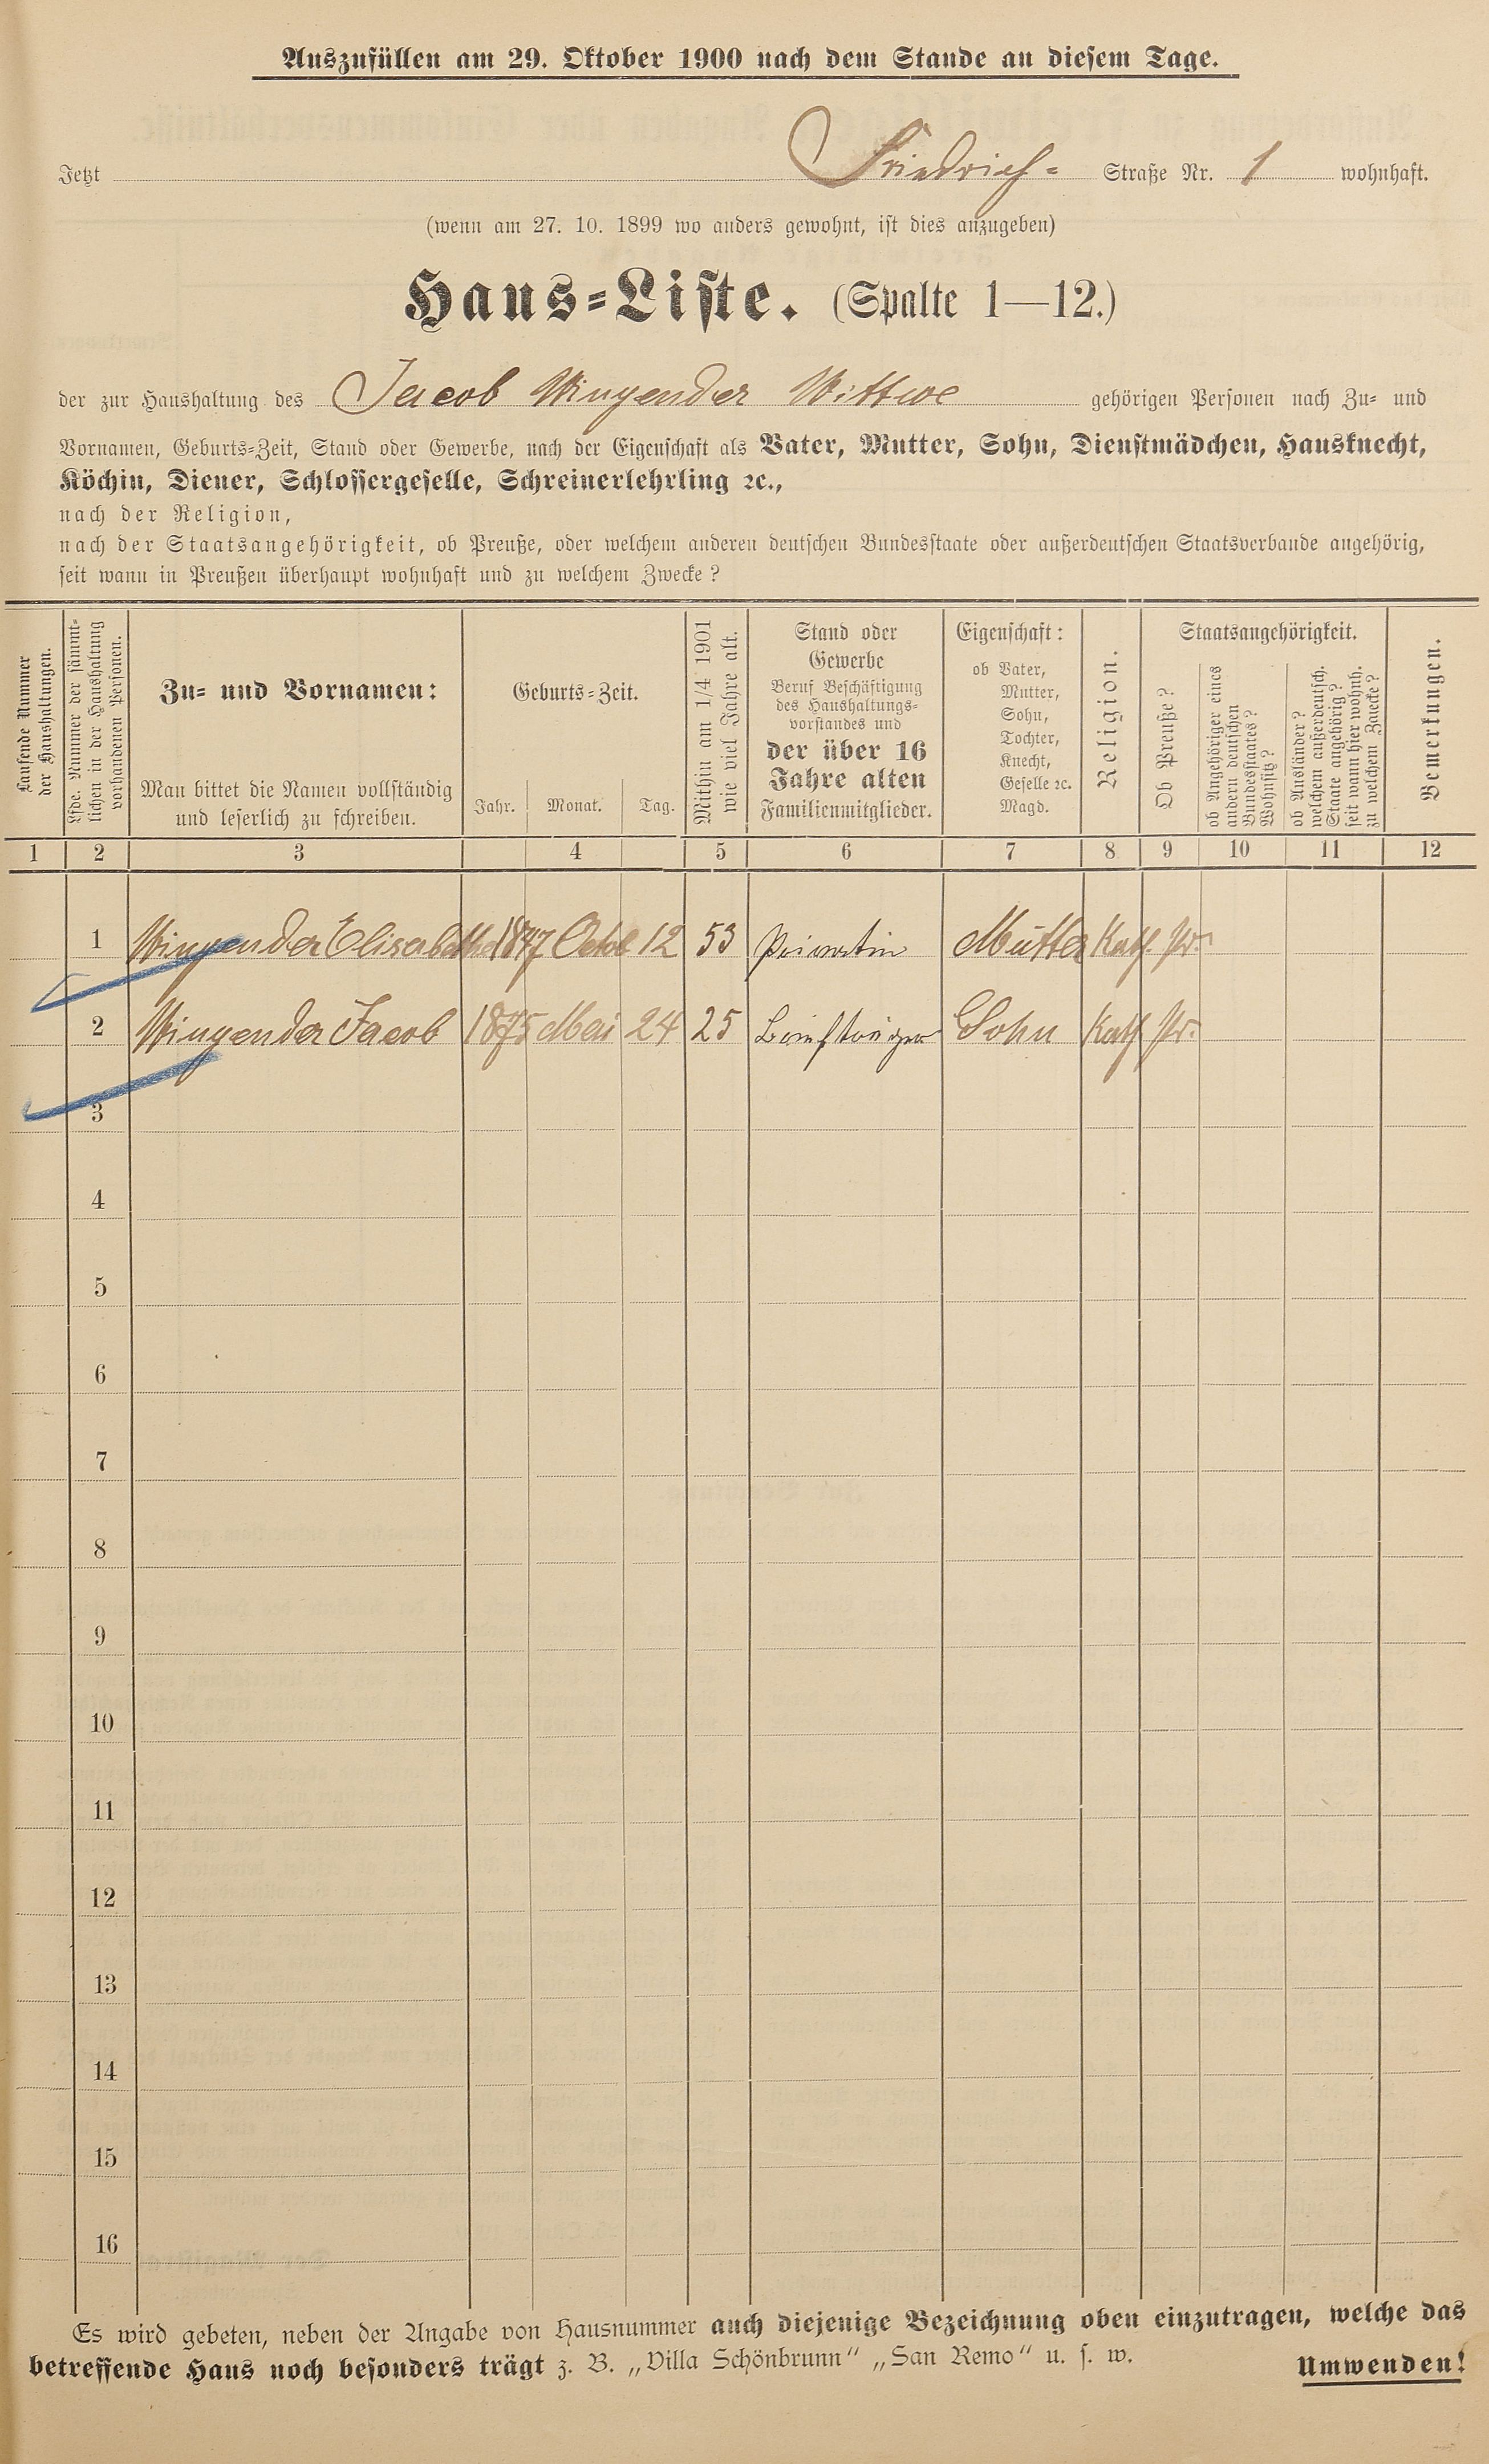 Auszufüllen am 29. Oktober 1900 nach dem Stande an diesem Tage.
Jetzt Friedrich- Straße Nr. 1 wohnhaft.
(wenn am 27. 10. 1899 wo anders gewohnt, ist dies anzugeben)
Haus-Liste. (Spalte 1—12.)
der zur Haushaltung des Jacob Wingender Wittwe gehörigen Personen nach Zu- und
Vornamen, Geburts-Zeit, Stand oder Gewerbe, nach der Eigenschaft als Vater, Mutter, Sohn, Dienstmädchen, Hausknecht,
Köchin, Diener, Schlossergeselle, Schreinerlehrling ꝛc.,
nach der Religion,
nach der Staatsangehörigkeit, ob Preuße, oder welchem anderen deutschen Bundesstaate oder außerdeutschen Staatsverbande angehörig,
seit wann in Preußen überhaupt wohnhaft und zu welchem Zwecke?
Laufende Nummer
der Haushaltungen.
Lfde. Nummer der sämmt-
lichen in der Haushaltung
vorhandenen Personen.
Zu- und Vornamen:
Man bittet die Namen vollständig
und leserlich zu schreiben.
Geburts-Zeit.
Jahr. Monat. Tag.
Mithin am 1/4 1901
wie viel Jahre alt.
Stand oder
Gewerbe
Beruf Beschäftigung
des Haushaltungs-
vorstandes und
der über 16
Jahre alten
Familienmitglieder.
Eigenschaft:
ob Vater,
Mutter,
Sohn,
Tochter,
Knecht,
Geselle ꝛc.
Magd.
Religion.
Staatsangehörigkeit.
Ob Preuße?
ob Angehöriger eines
andern deutschen
Bundesstaates?
Wohnsitz?
ob Ausländer?
welchem außerdeutsch.
Staate angehörig?
seit wann hier wohnh.
zu welchem Zwecke?
Bemerkungen.
1 2 3 4 5 6 7 8 9 10 11 12
1 Wingender Elisabetha 1847 Octob 12 53 Privatin Mutter Kath. Pr.
2 Wingender Jacob 1875 Mai 24 25 Briefträger Sohn Kath Pr.
3
4
5
6
7
8
9
10
11
12
13
14
15
16
Es wird gebeten, neben der Angabe von Hausnummer auch diejenige Bezeichnung oben einzutragen, welche das
betreffende Haus noch besonders trägt z. B. „Villa Schönbrunn" „San Remo" u. s. w. Umwenden!